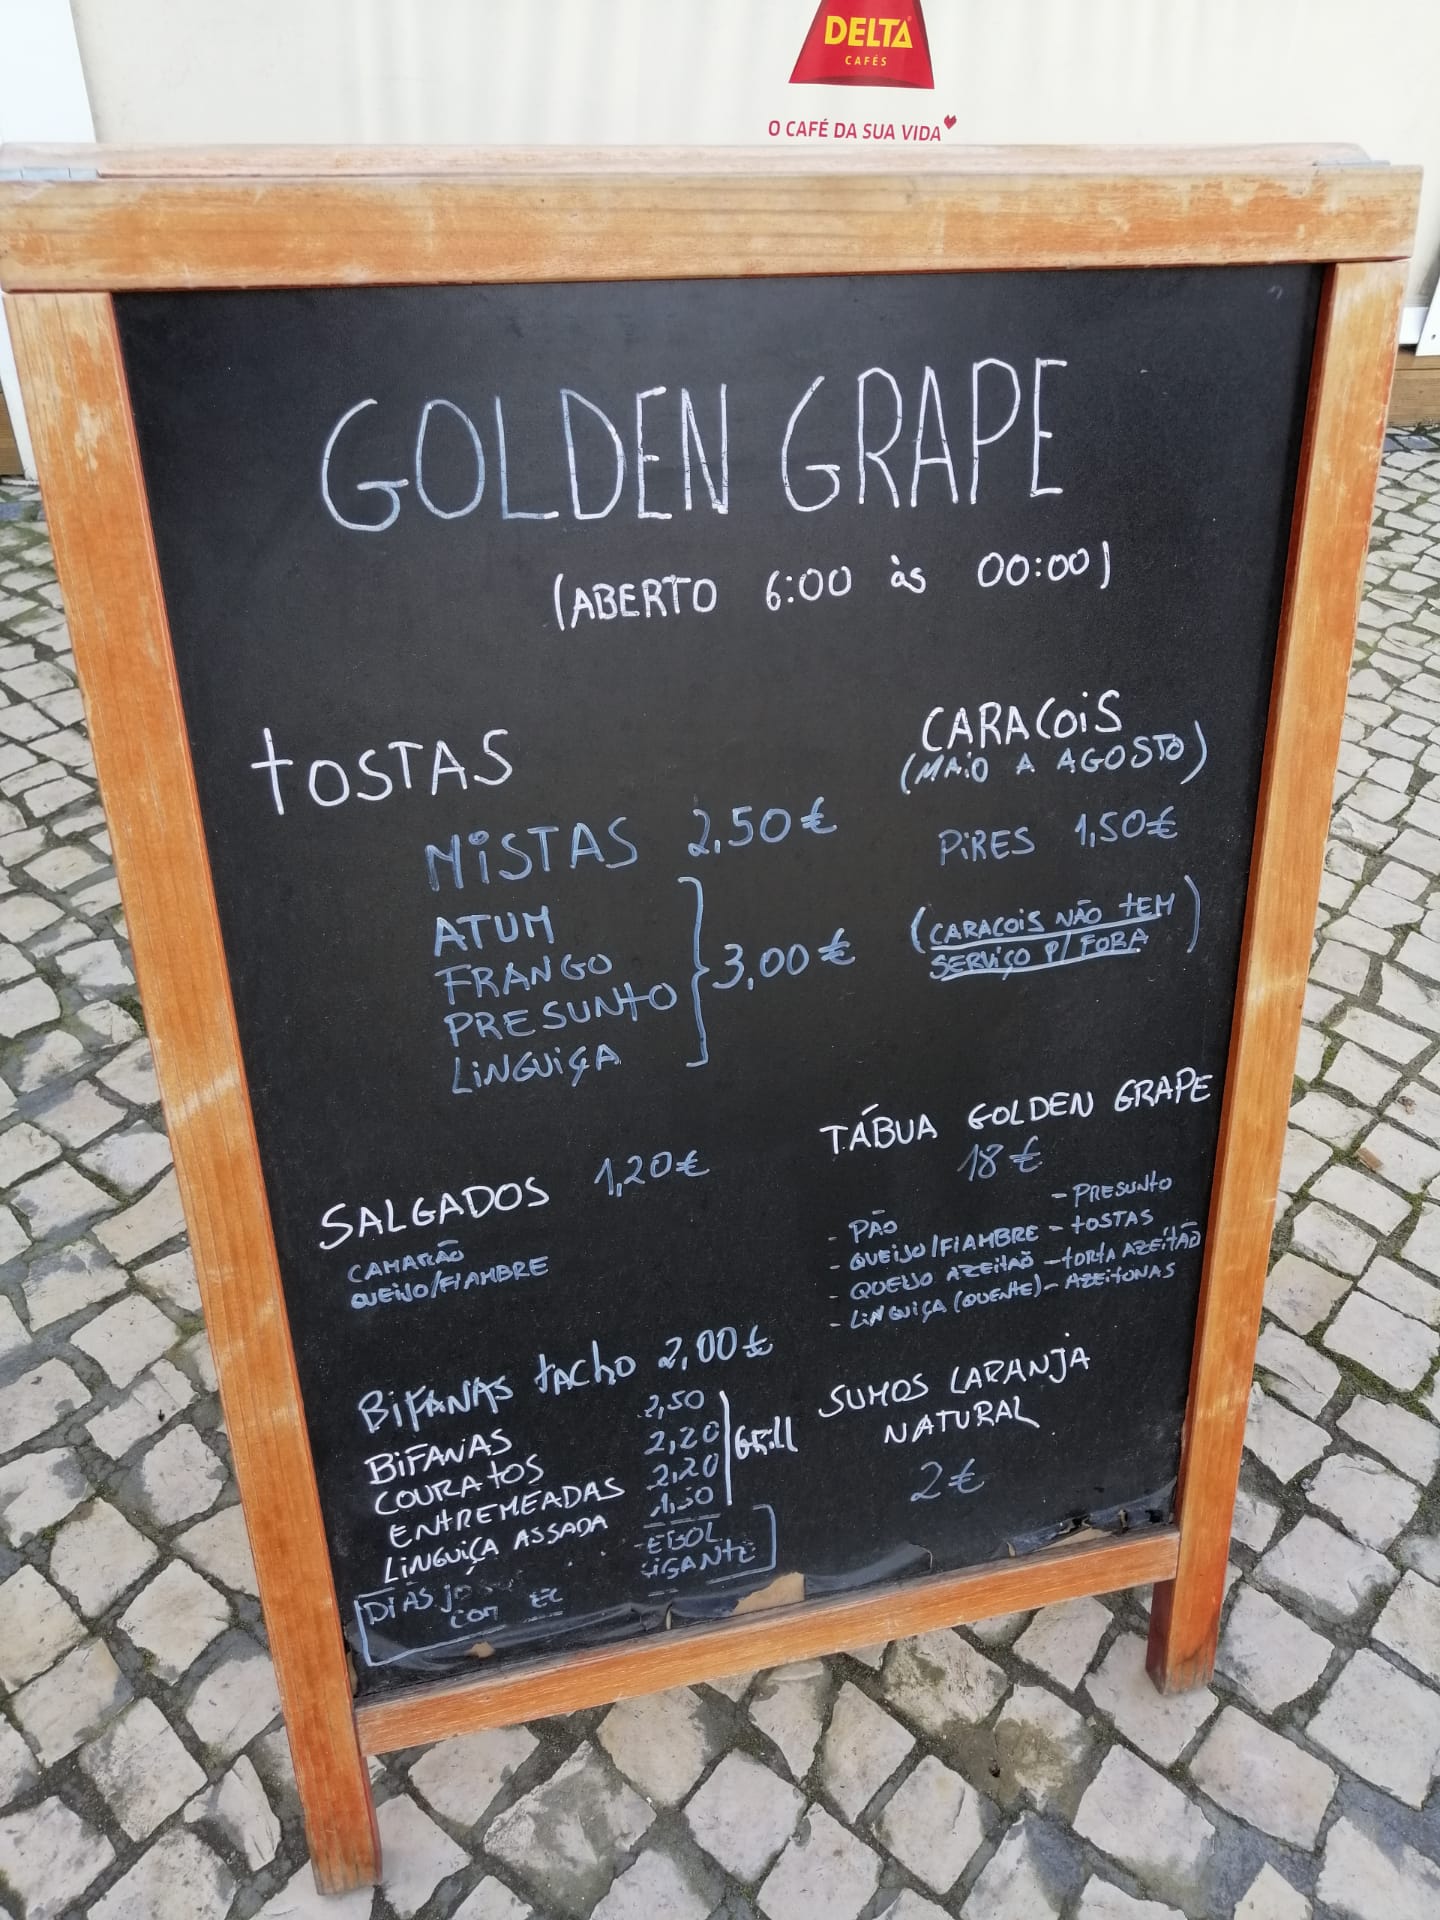 DELTA
CAFÉS
O CAFÉ DA SUA VIDA
GOLDEN GRAPE
(ABERTO 6:00 às 00:00)
TOSTAS
MISTAS 2,50€
ATUM
FRANGO
PRESUNTO
LINGUIÇA
3,00€
CARACOIS
(MAIO A AGOSTO)
PIRES 1,50€
(CARACOIS NÃO TEM
SERVIÇO P/ FORA)
SALGADOS 1,20€
CAMARÃO
QUEIJO/FIAMBRE
TÁBUA GOLDEN GRAPE
18€
- PRESUNTO
- PÃO
- QUEIJO/FIAMBRE - TOSTAS
- QUEIJO AZEITÃO - TORTA AZEITÃO
- LINGUIÇA (QUENTE) - AZEITONAS
BIFANAS TACHO 2,00€
BIFANAS 2,50
COURATOS 2,20
ENTREMEADAS 2,20
LINGUIÇA ASSADA 1,50
Grill
DIAS
COM
GIGANTE
SUMOS LARANJA
NATURAL
2€